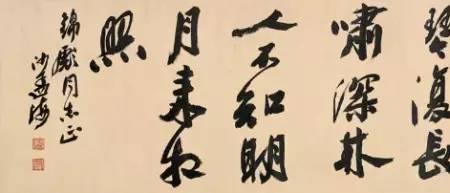 琴復長
嘯深林
人不知明
月来相
照
錦同志正
沙孟海